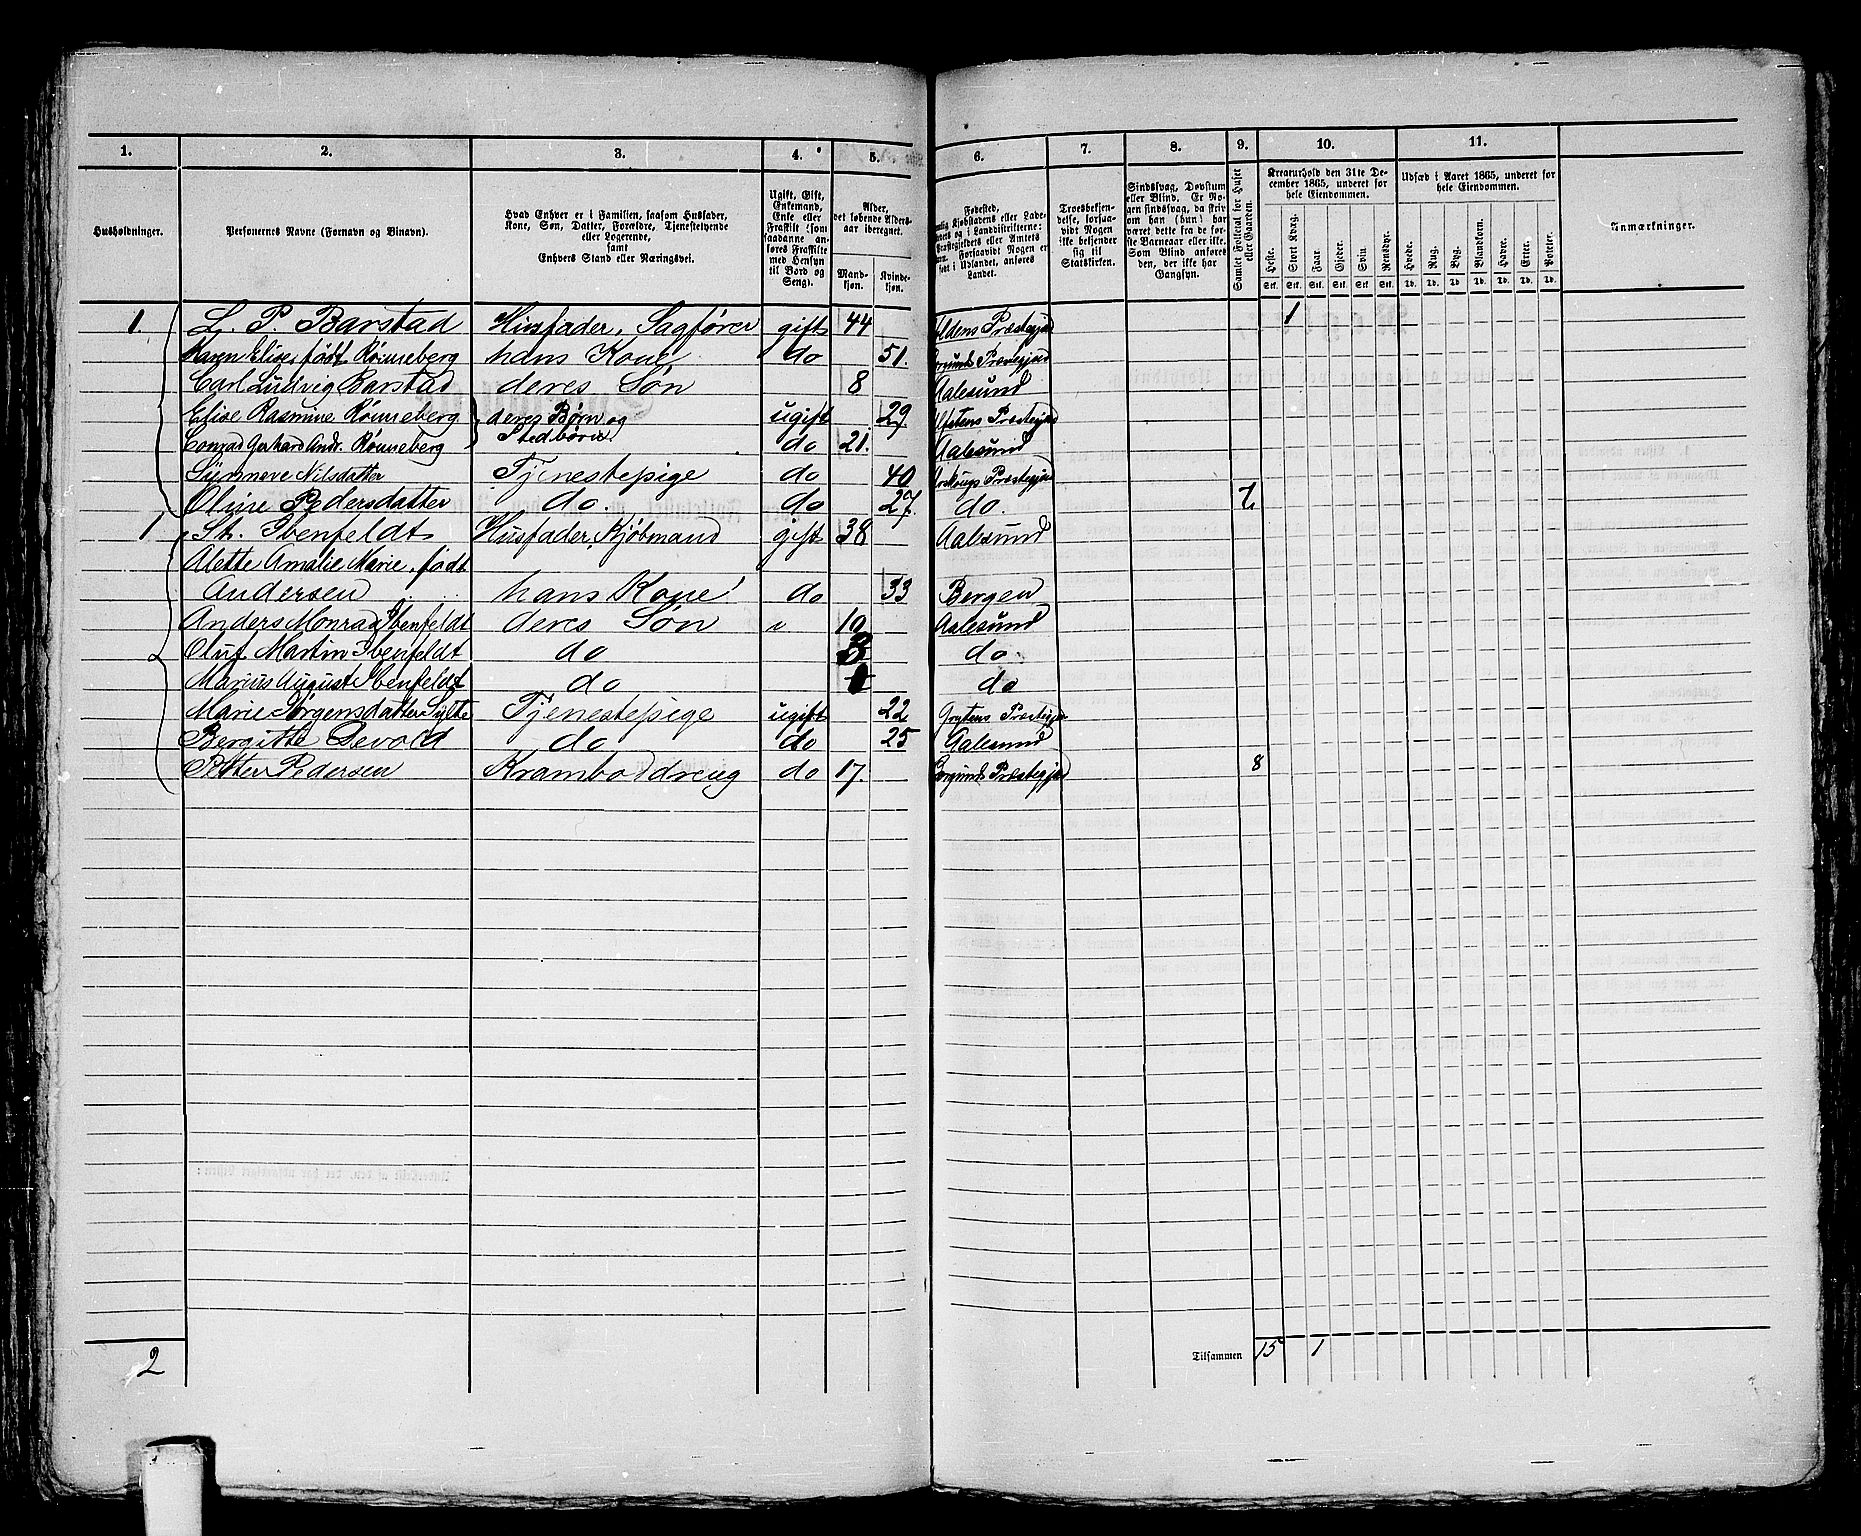 1. 2. 3. 4. 5. 6. 7. 8. 9. 10. 11.
Husholdninger.
Personernes Navne (Fornavn og Binavn).
Hvad Enhver er i Familien, saasom Husfader, Kone, Søn, Datter, Forældre, Tjenestetyende eller Logerende, samt Enhvers Stand eller Næringsvei.
Ugift, Gift, Enkemand, Enke eller Fraskilt (som saadanne anføres Fraskilte med Hensyn til Bord og Seng).
Alder, det løbende Aldersaar iberegnet. Mandkjøn. Kvindekjøn.
Fødested, Kjøbstadens eller Ladestedets og i Landdistrikterne: Præstegjeldets eller Amtets Navn. Forsaavidt Nogen er født i Udlandet, anføres Landet.
Troesbekjendelse, forsaavidt Nogen ikke bekjender sig til Statskirken.
Sindssvag, Døvstum eller Blind. Er Nogen sindssvag, da skrives om han (hun) har været dette fra de første Barneaar eller ikke. Som Blind anføres den, der ikke har Gangsyn.
Samlet Folketal for Huset eller Gaarden.
Kreaturhold den 31te December 1865, underet for hele Eiendommen.
Heste. Stort Kvæg. Faar. Gjeder. Sviin. Rensdyr.
Stk. Stk. Stk. Stk. Stk. Stk.
Udsæd i Aaret 1865, underet for hele Eiendommen.
Hvede. Rug. Byg. Blandkorn. Havre. Erter. Poteter.
Td. Td. Td. Td. Td. Td. Td.
Anmærkninger.
1. L. P. Barstad Husfader, Sagfører gift 44 oldens Præstegjæld 1
Karen Elise, født Rønneberg hans Kone do 51. Borgunds Præstegjæld
Carl Ludvig Barstad deres Søn 8 Aalesund
Elise Rasmine Rønneberg deres Børn og ugift 29. Præstegjæld
Conrad Gerhard Andr. Rønneberg Stedbørn do 21. Aalesund
Synneve Nilsdatter Tjenestepige do 40 Ørskougs Præstegjæld
Oline Pedersdatter do. do 27. do. 7
1 St. Ibenfeldt Husfader, Kjøbmand gift 38 Aalesund
Alette Amalie Marie, født
Andersen hans Kone do 33 Bergen
Anders Monrad Ibenfeldt deres Søn 10 Aalesund
Oluf Martin Ibenfeldt do 3 do.
Marius August Ibenfeldt do 1 do
Marie Jørgensdatter Sylte Tjenestepige ugift 22 Grytens Præstegjæld
Bergitte Devold do do 25 Aalesund
Petter Pedersen Kramboddreng do 17. Borgunds Præstegjæld 8
2 Tilsammen 15 1